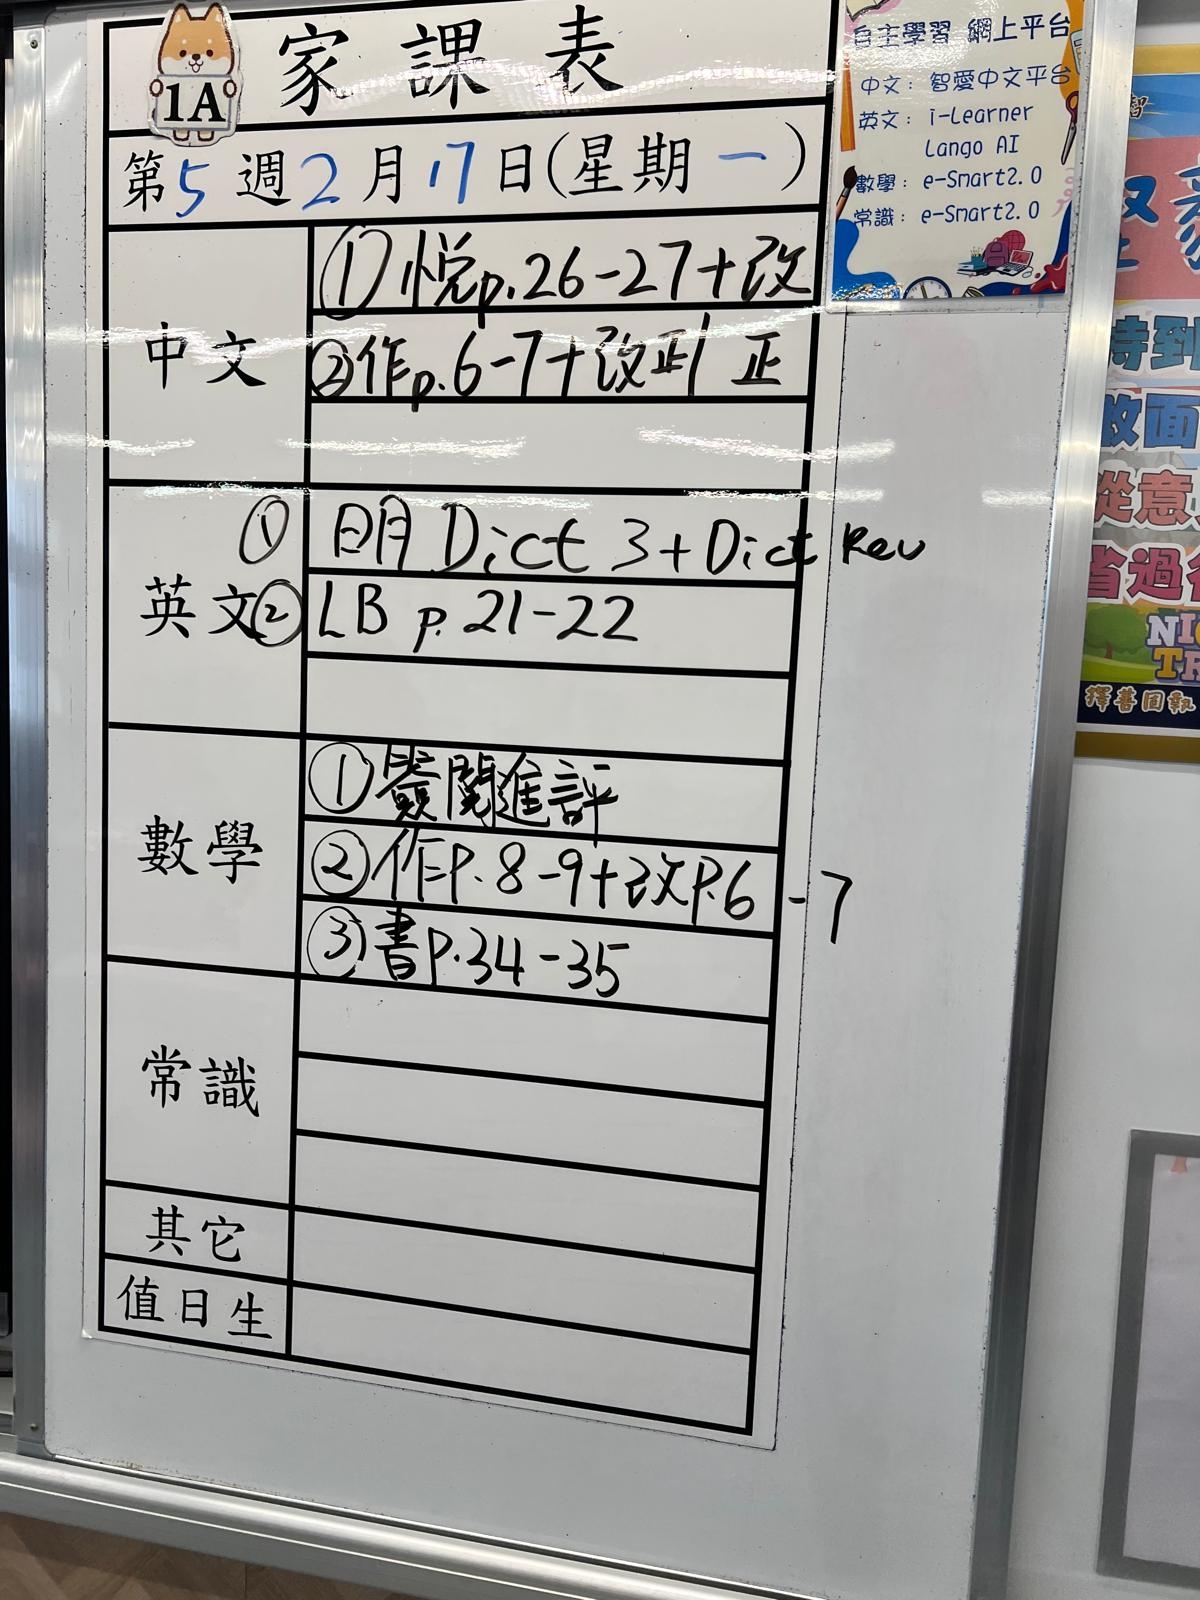 1A
家課表
第5週2月17日(星期一)
中文
①悅p.26-27+改
②作p.6-7+改正/正
英文
① 明 Dict 3+Dict Rev
② LB p.21-22
數學
①簽閱進評
②作P.8-9+改P.6-7
③書P.34-35
常識
其它
值日生
自主學習 網上平台
中文：智愛中文平台
英文：i-Learner
Lango AI
數學：e-Smart2.0
常識：e-Smart2.0
智
待到
改面
從意
省過
擇善固執